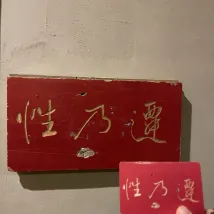 性乃遷
性乃遷